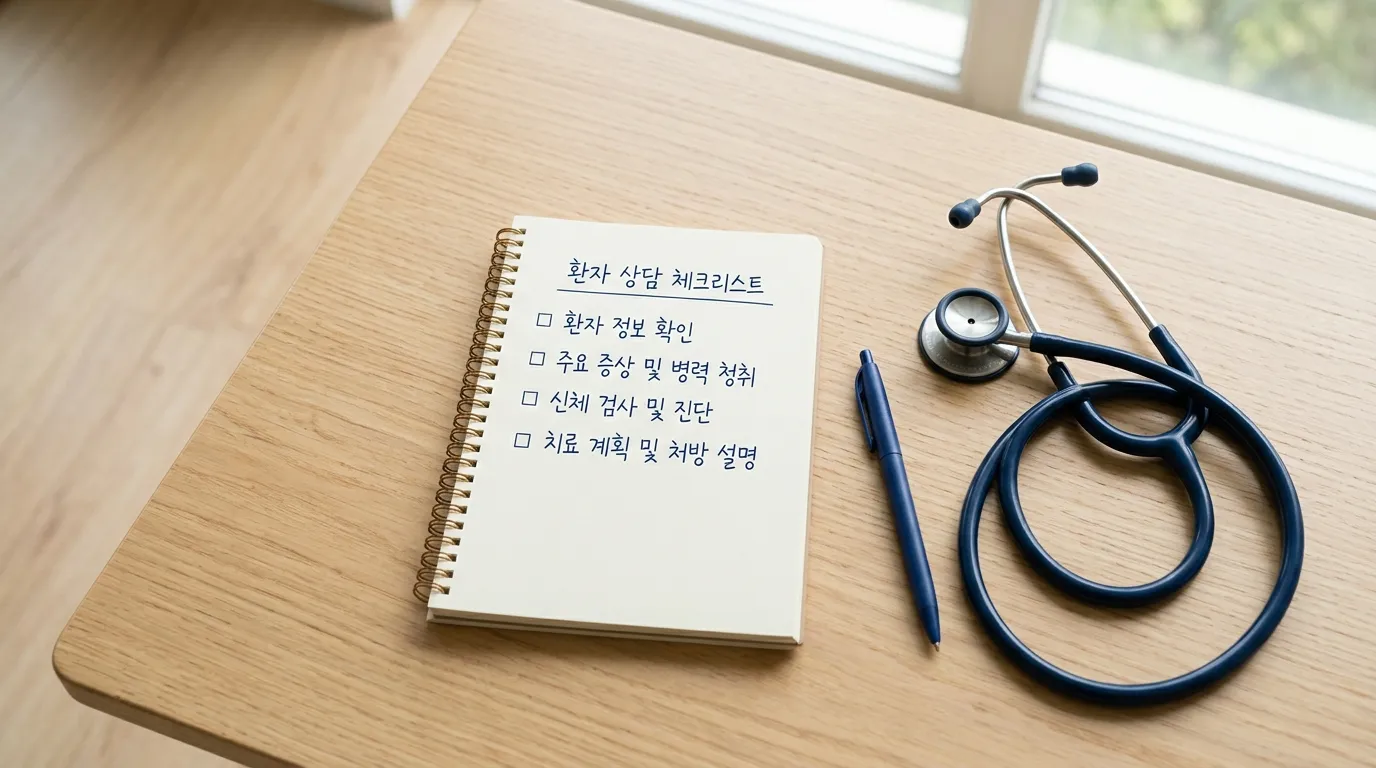 환자 상담 체크리스트
☐ 환자 정보 확인
☐ 주요 증상 및 병력 청취
☐ 신체 검사 및 진단
☐ 치료 계획 및 처방 설명